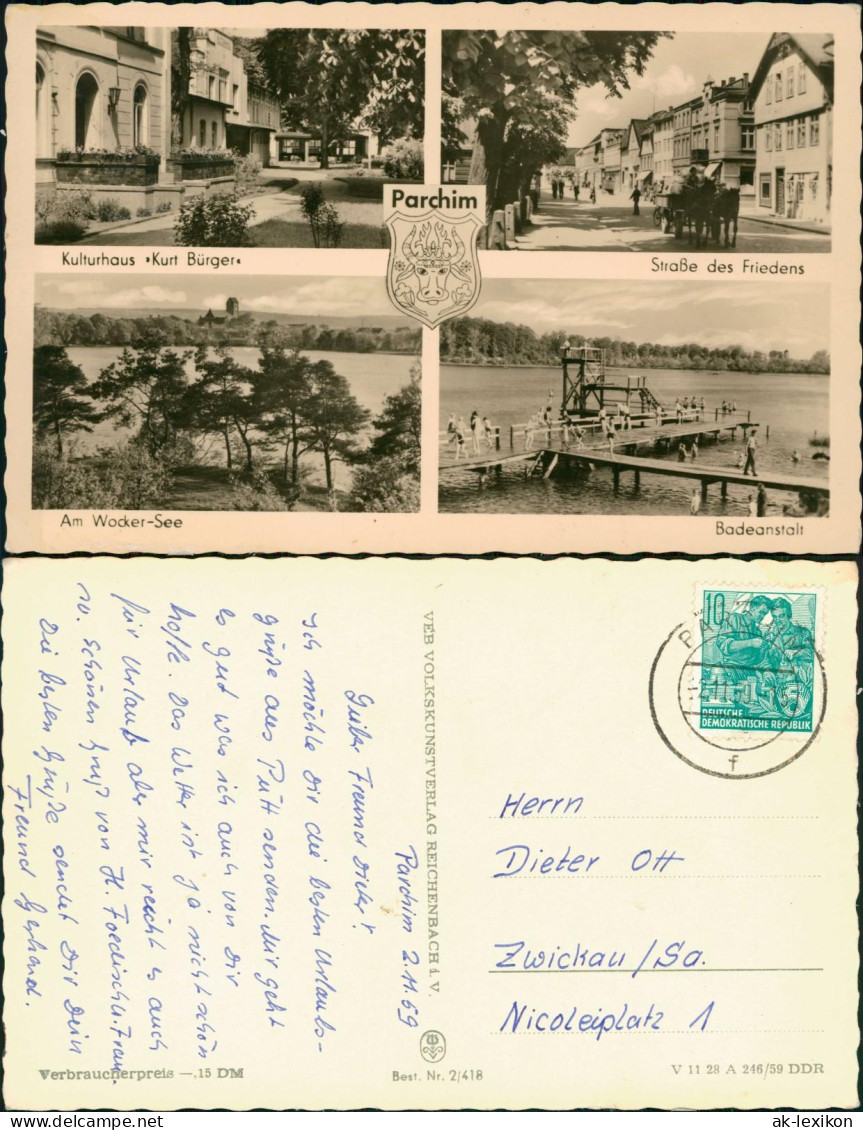 Parchim
Kulturhaus "Kurt Bürger"
Straße des Friedens
Am Wocker-See
Badeanstalt
Parchim 2.11.59
Lieber Freund Dieter!
Ich möchte Dir die besten Urlaubs-
grüße aus Putt senden. Mir geht
es gut was ich auch von Dir
hoffe. Das Wetter ist ja nicht schön
für Urlaub aber mir reicht es auch
so. Schönen Gruß von H. u. Frau.
Die besten Grüße sendet Dir Dein
Freund Gerhard.
VEB VOLKSKUNSTVERLAG REICHENBACH i. V.
Verbraucherpreis —.15 DM
Best. Nr. 2/418
V 11 28 A 246/59 DDR
10
DEUTSCHE
DEMOKRATISCHE REPUBLIK
PARCHIM
f
Herrn
Dieter Ott
Zwickau/Sa.
Nicoleiplatz 1
delcampe.net
ak-lexikon